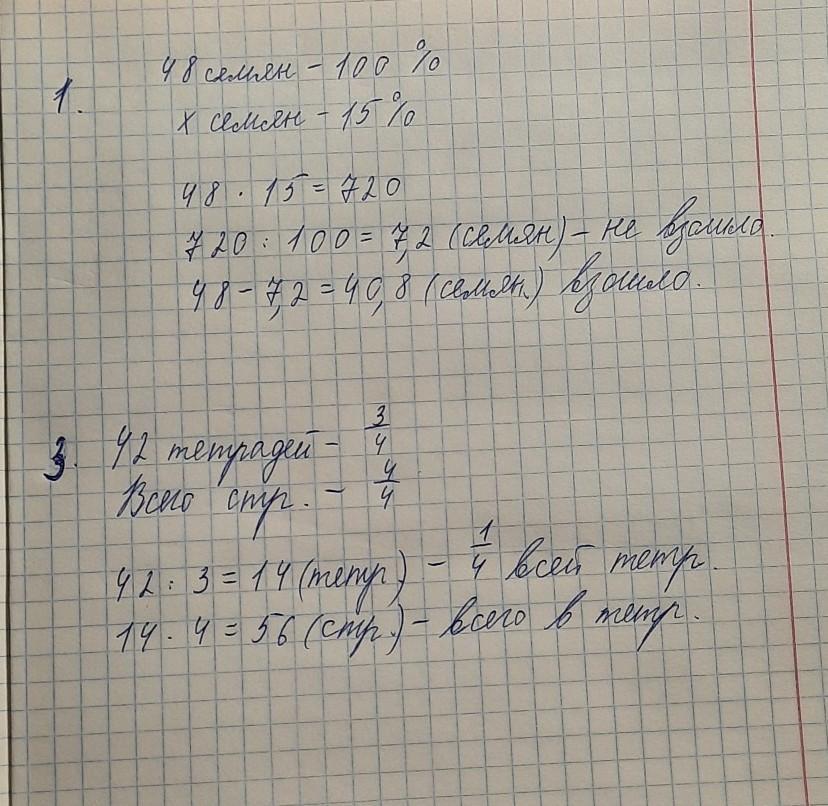 1. 48 семян – 100 %
х семян – 15 %
48 · 15 = 720
720 : 100 = 7,2 (семян) – не взошло.
48 – 7,2 = 40,8 (семян.) взошло.
3. 42 тетрадей – 3/4
Всего стр. – 4/4
42 : 3 = 14 (тетр) – 1/4 всей тетр.
14 · 4 = 56 (стр.) – всего в тетр.